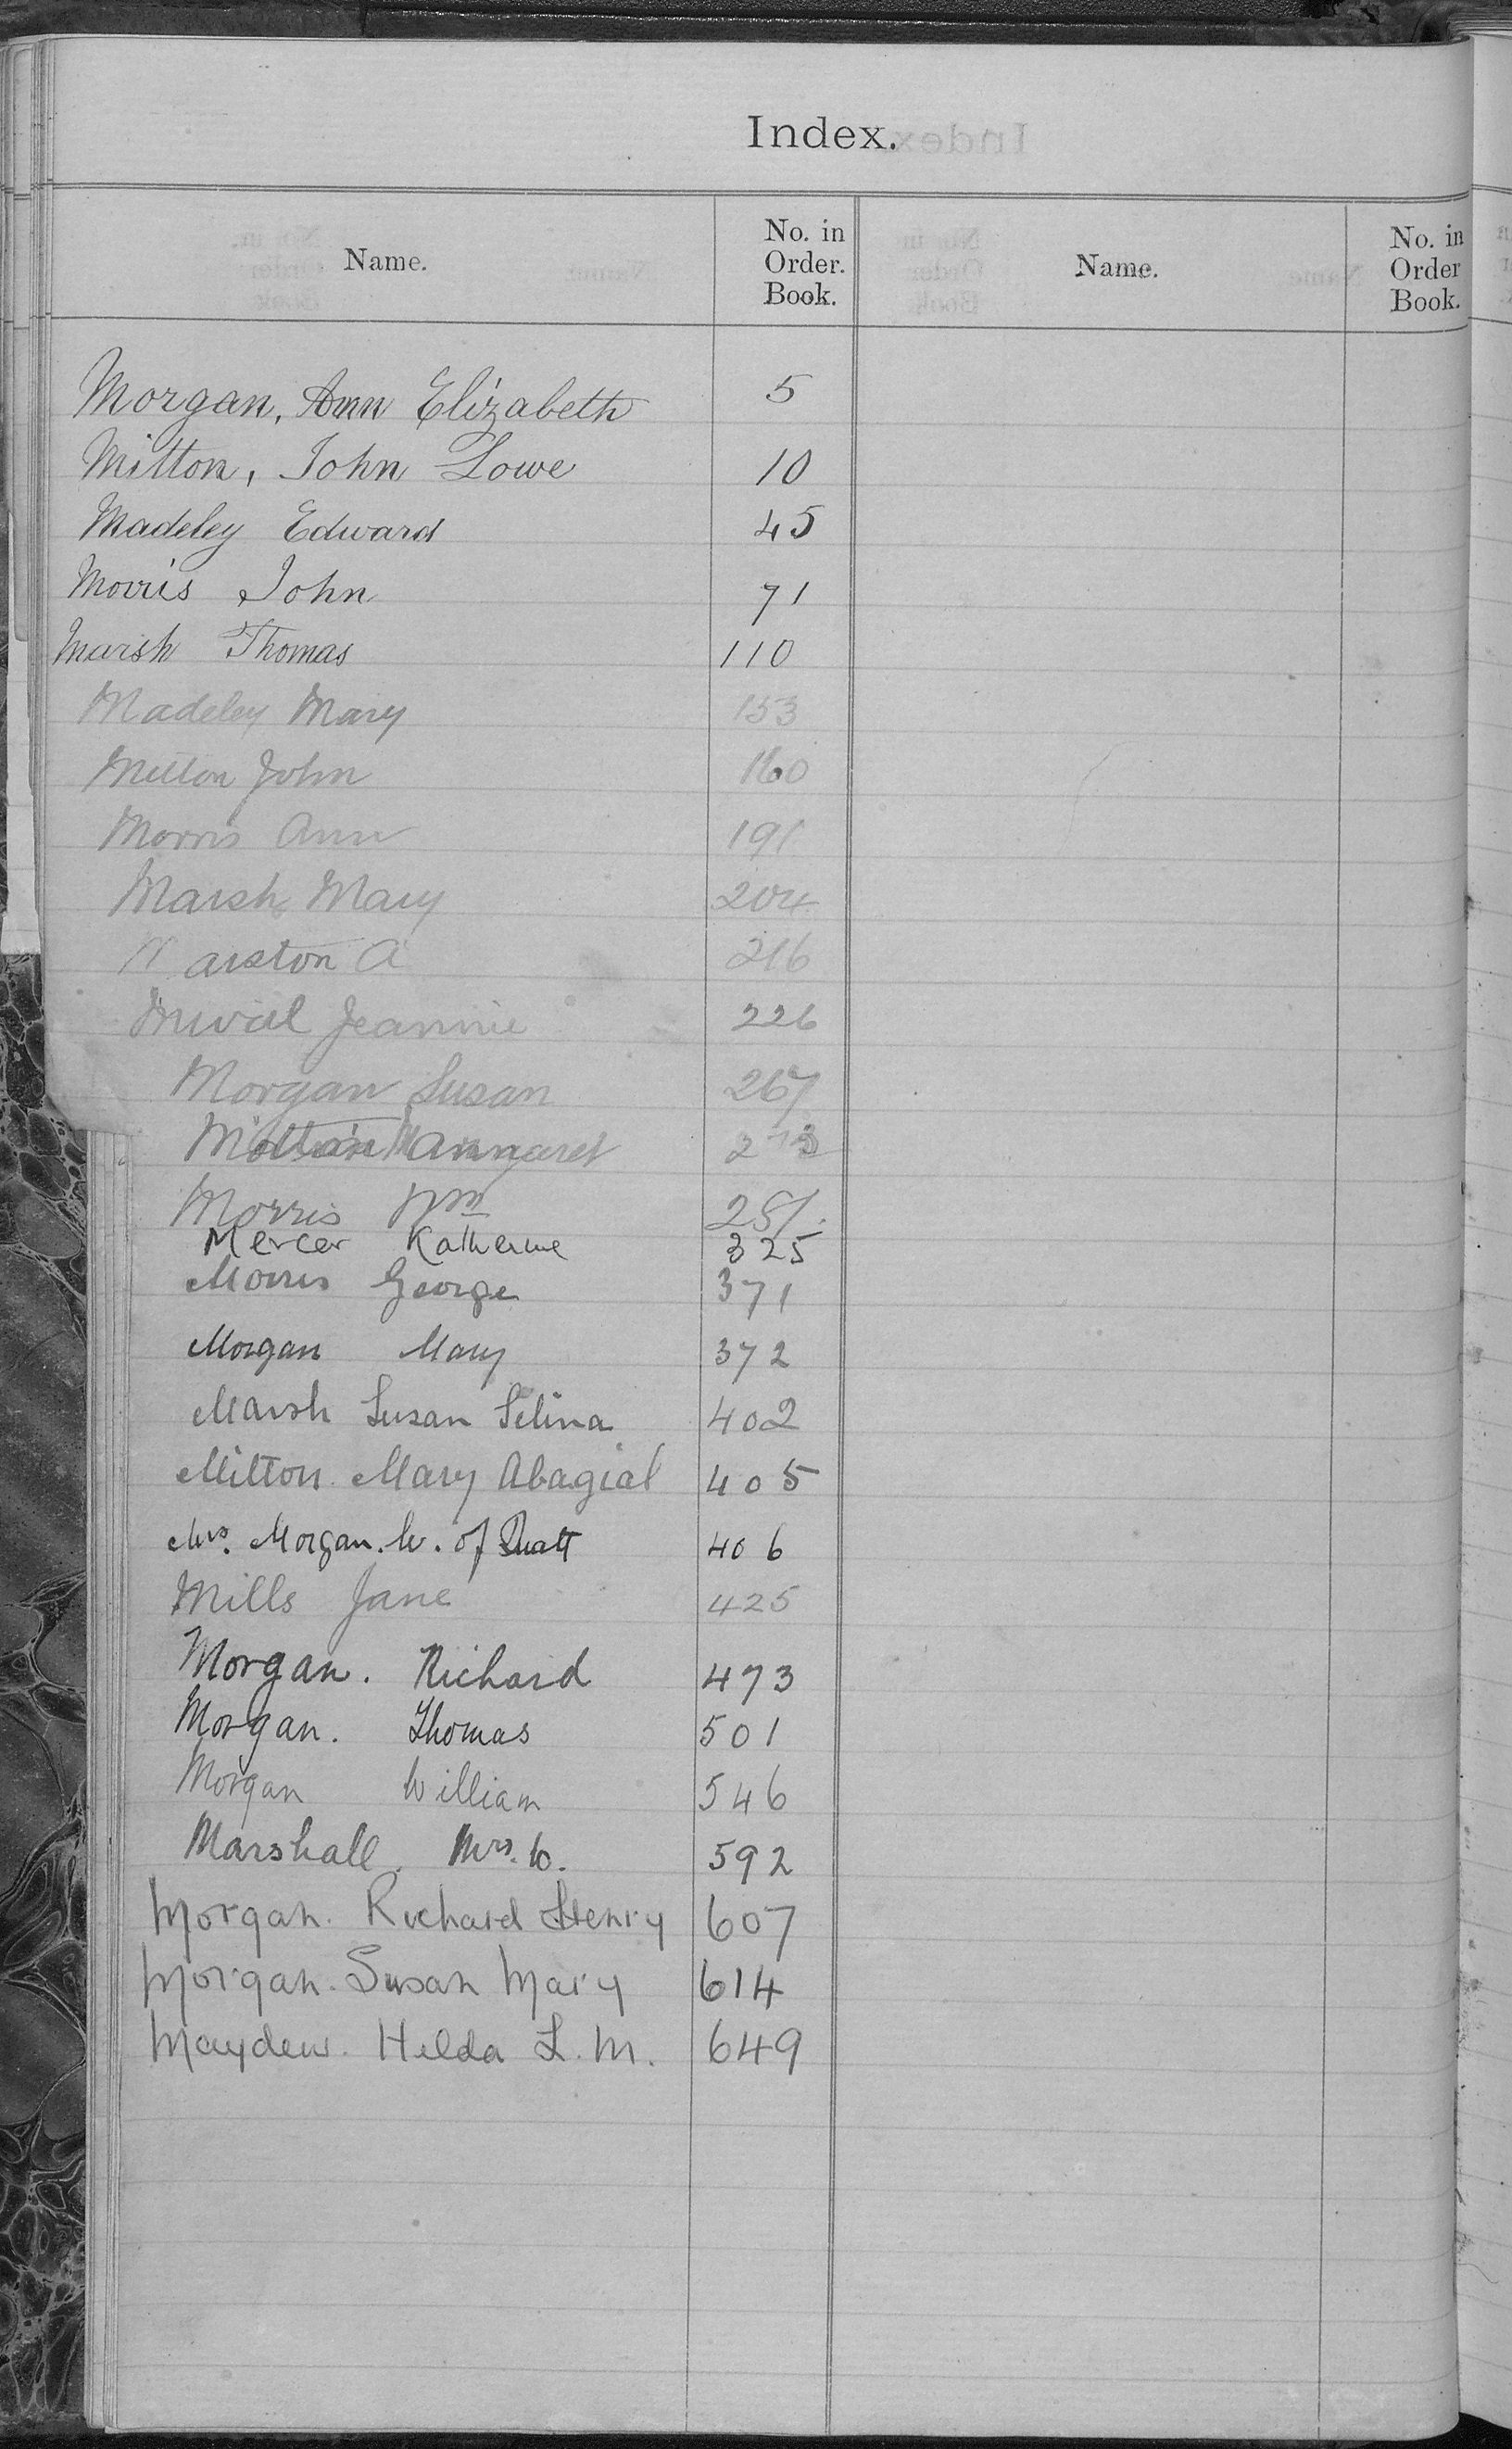 Index.
Name. No. in Order. Book. Name. No. in Order Book.
Morgan, Ann Elizabeth 5
Mitton, John Lowe 10
Madeley Edward 45
Morris John 71
Marsh Thomas 110
Madeley Mary 153
Mitton John 160
Morris Ann 191
Marsh Mary 204
Marston A 216
Jeannie 226
Morgan Susan 267
Margaret
Morris Wm
Mercer Katherine 325
Morris George 371
Morgan Mary 372
Marsh Susan Selina 402
Milton Mary Abagial 405
Mrs. Morgan. W. of 406
Mills Jane 425
Morgan. Richard 473
Morgan. Thomas 501
Morgan William 546
Marshall. Mrs. W. 592
Morgan. Richard Henry 607
Morgan. Susan Mary 614
Maydew. Hilda L. M. 649